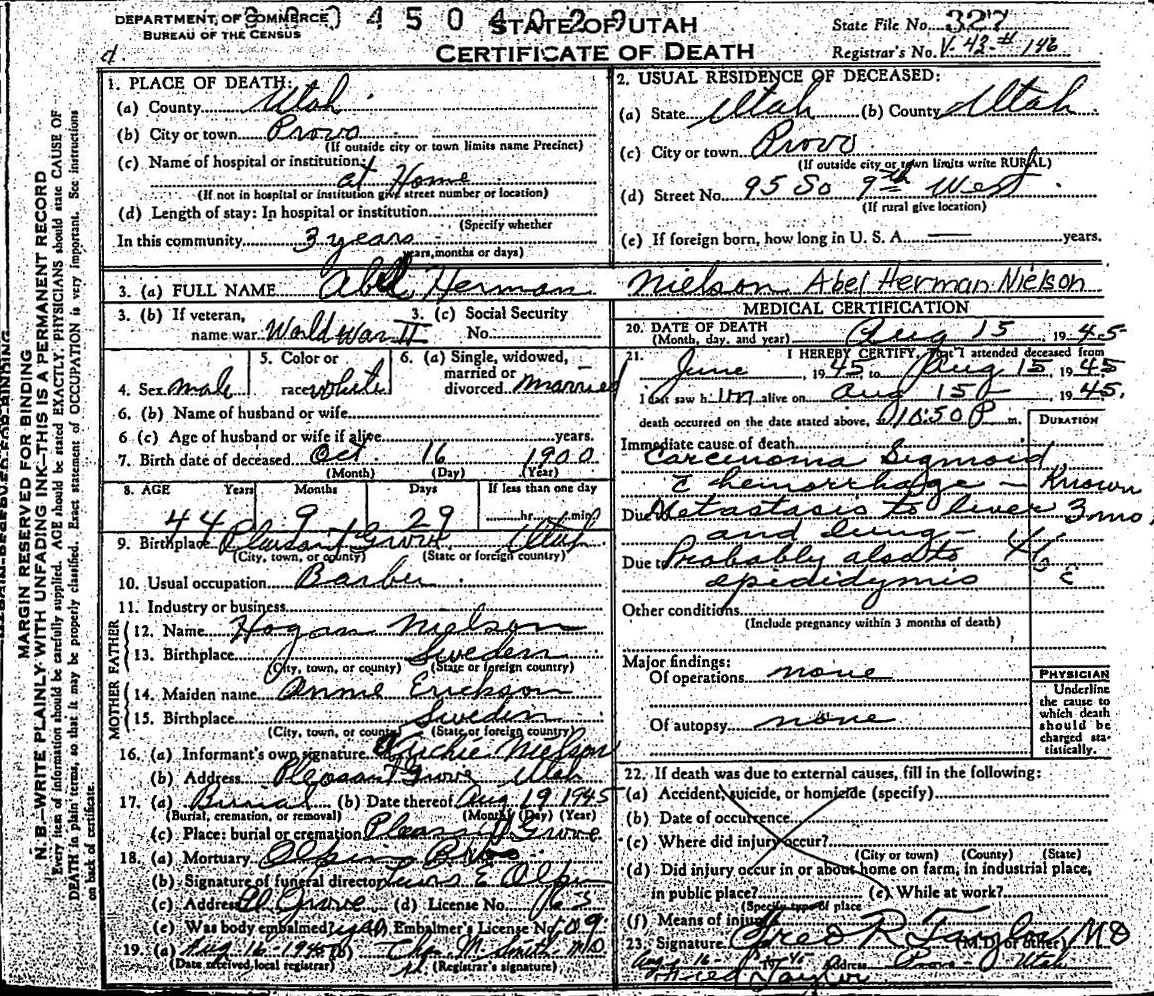 DEPARTMENT OF COMMERCE
BUREAU OF THE CENSUS
STATE OF UTAH
CERTIFICATE OF DEATH
State File No. 327
Registrar's No. V-43-# 146
MARGIN RESERVED FOR BINDING
N. B.—WRITE PLAINLY WITH UNFADING INK—THIS IS A PERMANENT RECORD
Every item of information should be carefully supplied. AGE should be stated EXACTLY. PHYSICIANS should state CAUSE OF
DEATH in plain terms, so that it may be properly classified. Exact statement of OCCUPATION is very important. See instructions
on back of certificate.
1. PLACE OF DEATH:
(a) County Utah
(b) City or town Provo
(If outside city or town limits name Precinct)
(c) Name of hospital or institution:
at Home
(If not in hospital or institution give street number or location)
(d) Length of stay: In hospital or institution
(Specify whether
In this community 3 years
years, months or days)
2. USUAL RESIDENCE OF DECEASED:
(a) State Utah (b) County Utah
(c) City or town Provo
(If outside city or town limits write RURAL)
(d) Street No. 95 So 9th West
(If rural give location)
(e) If foreign born, how long in U. S. A. — years.
3. (a) FULL NAME Abel Herman Nielson Abel Herman Nielson
3. (b) If veteran, name war World War II
3. (c) Social Security No.
4. Sex male
5. Color or race white
6. (a) Single, widowed, married or divorced married
6. (b) Name of husband or wife
6 (c) Age of husband or wife if alive years.
7. Birth date of deceased Oct. 16 1900
(Month) (Day) (Year)
8. AGE Years Months Days If less than one day
44 9 29 hr. min.
9. Birthplace Pleasant Grove Utah
(City, town, or county) (State or foreign country)
10. Usual occupation Barber
11. Industry or business
FATHER
12. Name Hogan Nielson
13. Birthplace Sweden
(City, town, or county) (State or foreign country)
MOTHER
14. Maiden name Annie Erickson
15. Birthplace Sweden
(City, town, or county) (State or foreign country)
16. (a) Informant's own signature Archie Nielson
(b) Address Pleasant Grove Utah
17. (a) Burial (b) Date thereof Aug 19 1945
(Burial, cremation, or removal) (Month) (Day) (Year)
(c) Place: burial or cremation Pleasant Grove
18. (a) Mortuary Olpin Bros
(b) Signature of funeral director E Olpin
(c) Address Pl Grove (d) License No. 163
(e) Was body embalmed? yes Embalmer's License No. 509
19. (a) Aug 16-1945 (b) Chas. M. Smith MD
(Date received local registrar) (Registrar's signature)
MEDICAL CERTIFICATION
20. DATE OF DEATH Aug 15, 1945
(Month, day, and year)
21. I HEREBY CERTIFY, That I attended deceased from
June, 1945, to Aug 15, 1945
I last saw him alive on Aug 15, 1945.
death occurred on the date stated above, 10:50 P m.
DURATION
Immediate cause of death
Carcinoma Sigmoid
c hemorrhage — Known
Due to Metastasis to liver 3 mo
and lung —
Due to Probably also to 46
epididymis c
Other conditions
(Include pregnancy within 3 months of death)
Major findings:
Of operations none
Of autopsy none
PHYSICIAN
Underline
the cause to
which death
should be
charged sta-
tistically.
22. If death was due to external causes, fill in the following:
(a) Accident, suicide, or homicide (specify)
(b) Date of occurrence
(c) Where did injury occur?
(City or town) (County) (State)
(d) Did injury occur in or about home on farm, in industrial place,
in public place? (e) While at work?
(Specify type of place
(f) Means of injury
23. Signature Fred R Taylor MD
(M.D. or other)
Aug 16-45 Address Provo - Utah
Fred Taylor